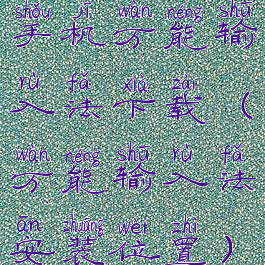 shǒu jī wàn néng shū
手机万能输
rù fǎ xià zǎi
入法下载（
wàn néng shū rù fǎ
万能输入法
ān zhuāng wèi zhì
安装位置）